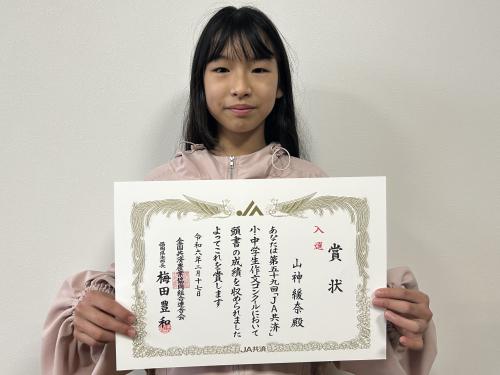 JA
賞状
入選
山神緩奈殿
あなたは第五十九回「JA共済」
小・中学生作文コンクールにおいて
頭書の成績を収められました
よってこれを賞します
令和六年二月十七日
全国共済農業協同組合連合会
福岡県本部長
梅田豊和
JA共済